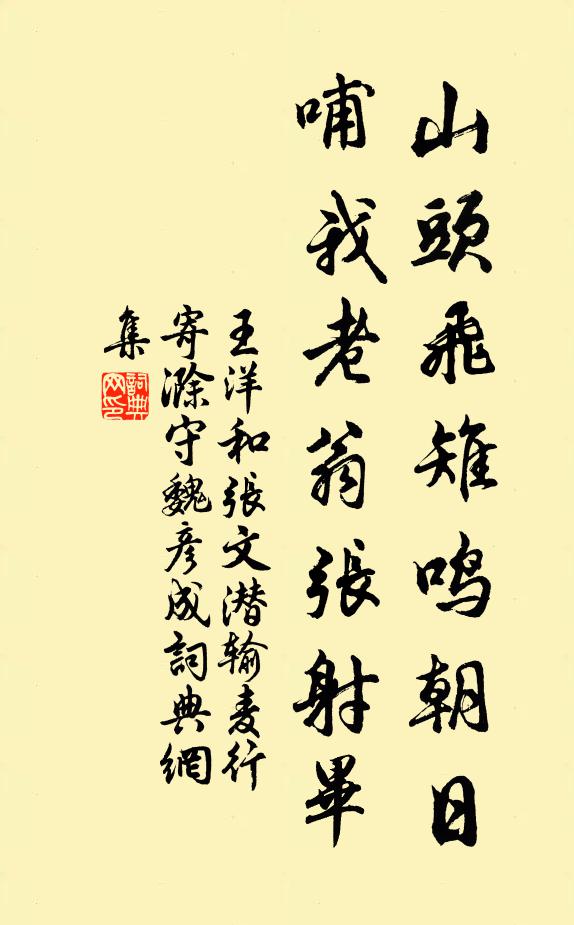 山頭飛雉鳴朝日
哺我老翁張射畢
王洋和張文潛輸麦行
寄滁守魏彦成詞典網
集
詞典
网印